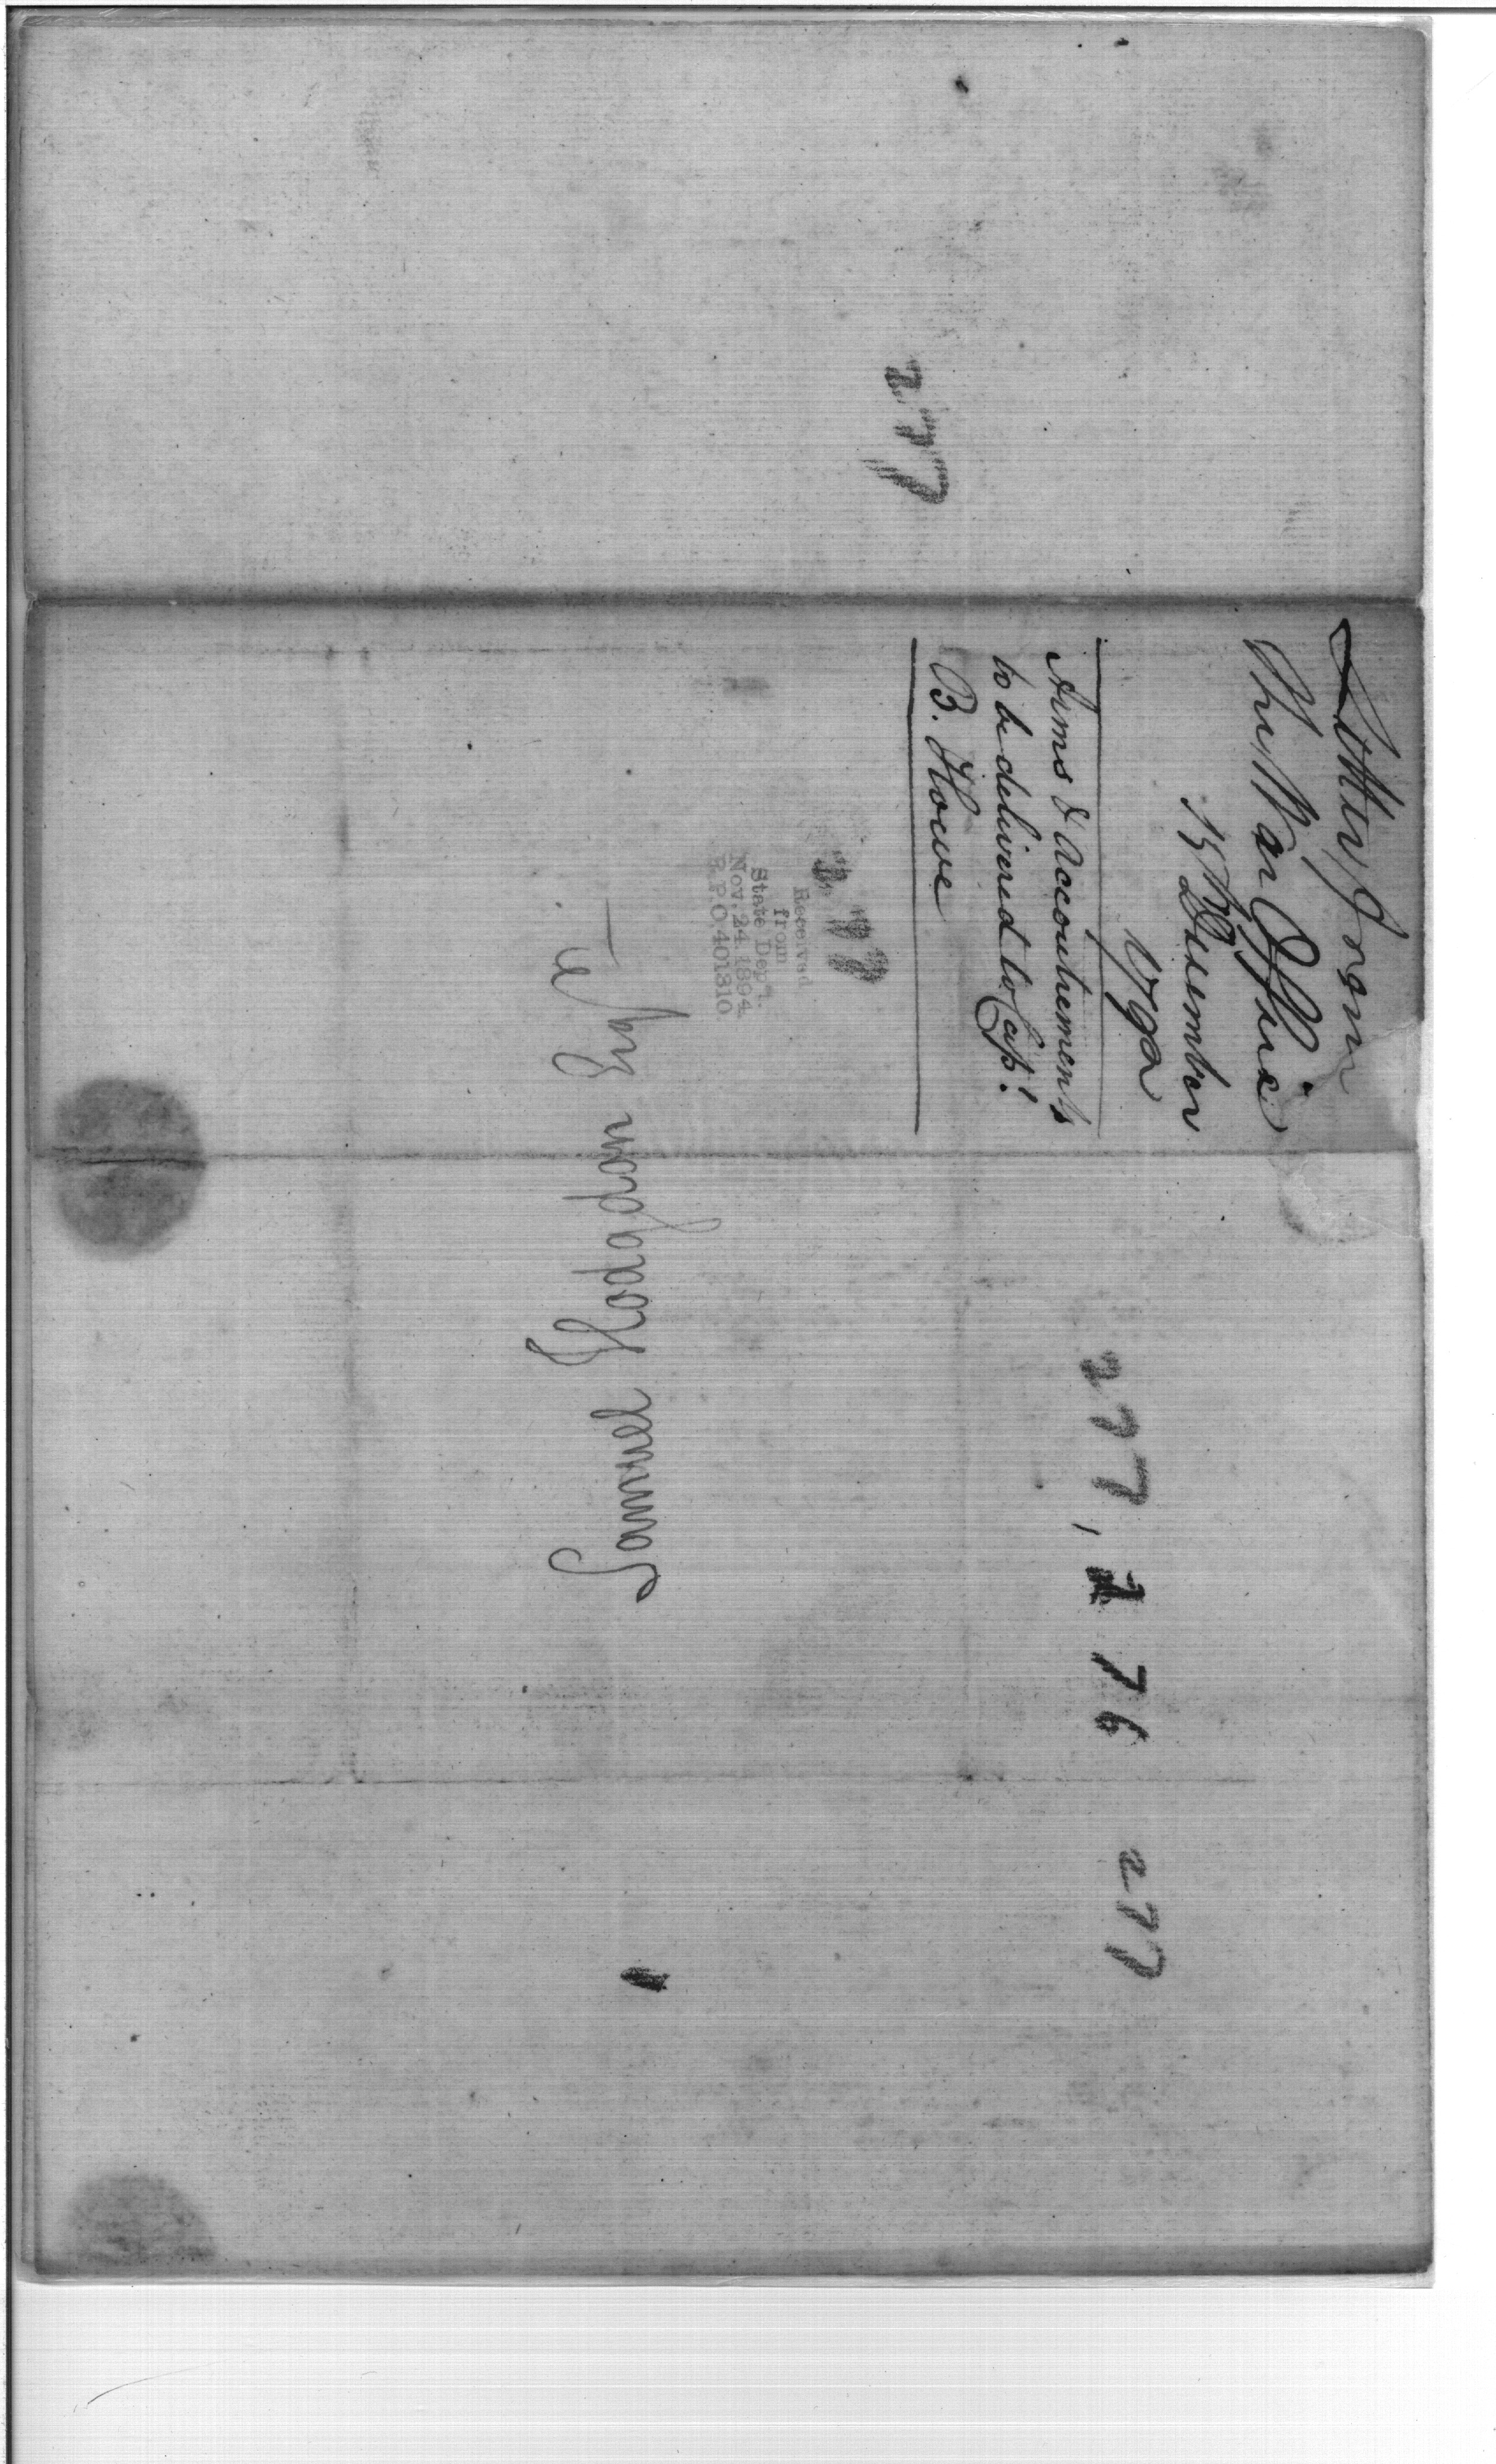 277
Letter from
the War Office
15th December
1792
Arms & Accoutrements
to be delivered to Capt.
B. Howe
277
Received
from
State Dep't.
Nov. 24, 1894
R.P.O. 401310
Samuel Hodgdon Esqr
277, 276
277